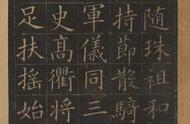 随珠祖和
持節散騎
軍儀同三
史髙衢将
足扶摇始